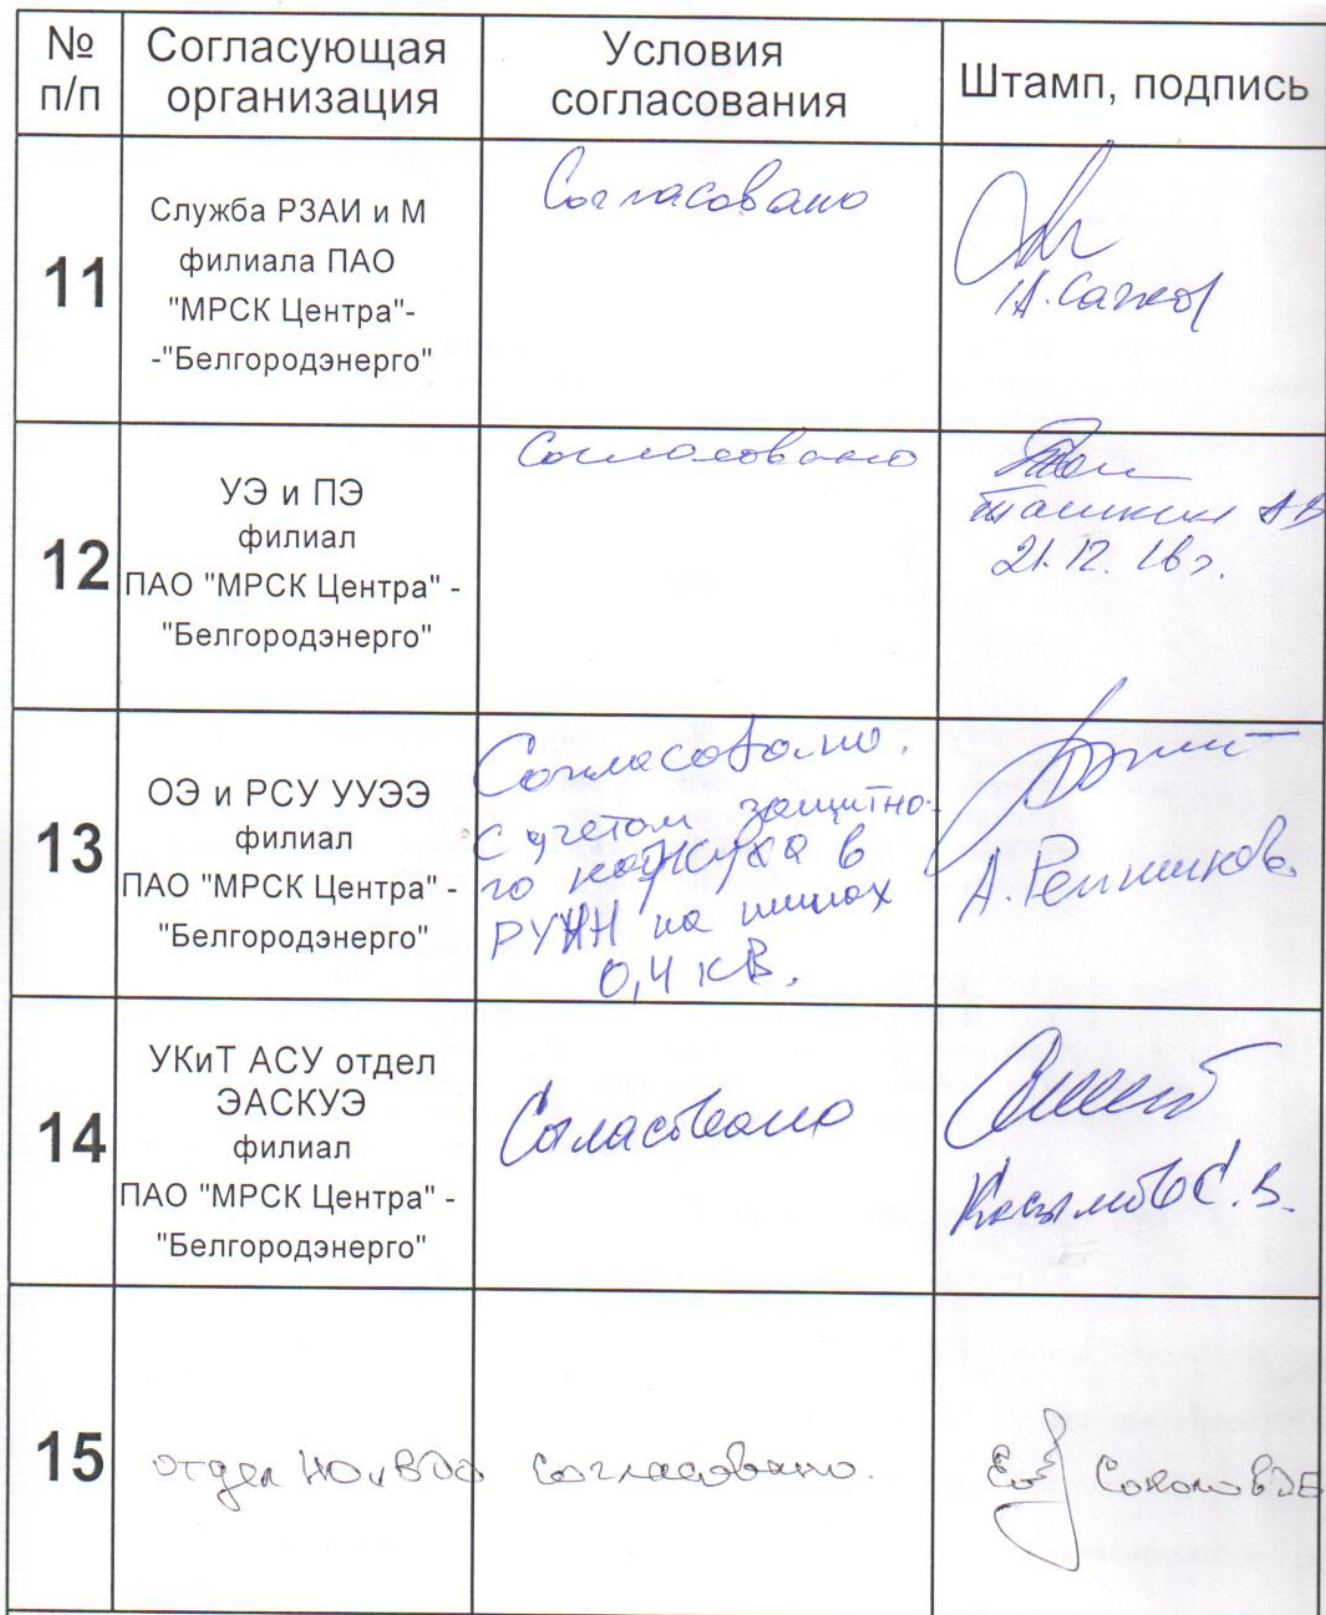 № п/п
Согласующая организация
Условия согласования
Штамп, подпись
11
Служба РЗАИ и М
филиала ПАО
"МРСК Центра"-
-"Белгородэнерго"
Согласовано
12
УЭ и ПЭ
филиал
ПАО "МРСК Центра" -
"Белгородэнерго"
Согласовано
21.12.16г.
13
ОЭ и РСУ УУЭЭ
филиал
ПАО "МРСК Центра" -
"Белгородэнерго"
Согласовано.
С учетом защитно-
го кожуха в
РУНН на шинах
0,4 кВ.
14
УКиТ АСУ отдел
ЭАСКУЭ
филиал
ПАО "МРСК Центра" -
"Белгородэнерго"
Согласовано
15
отдел
согласовано.